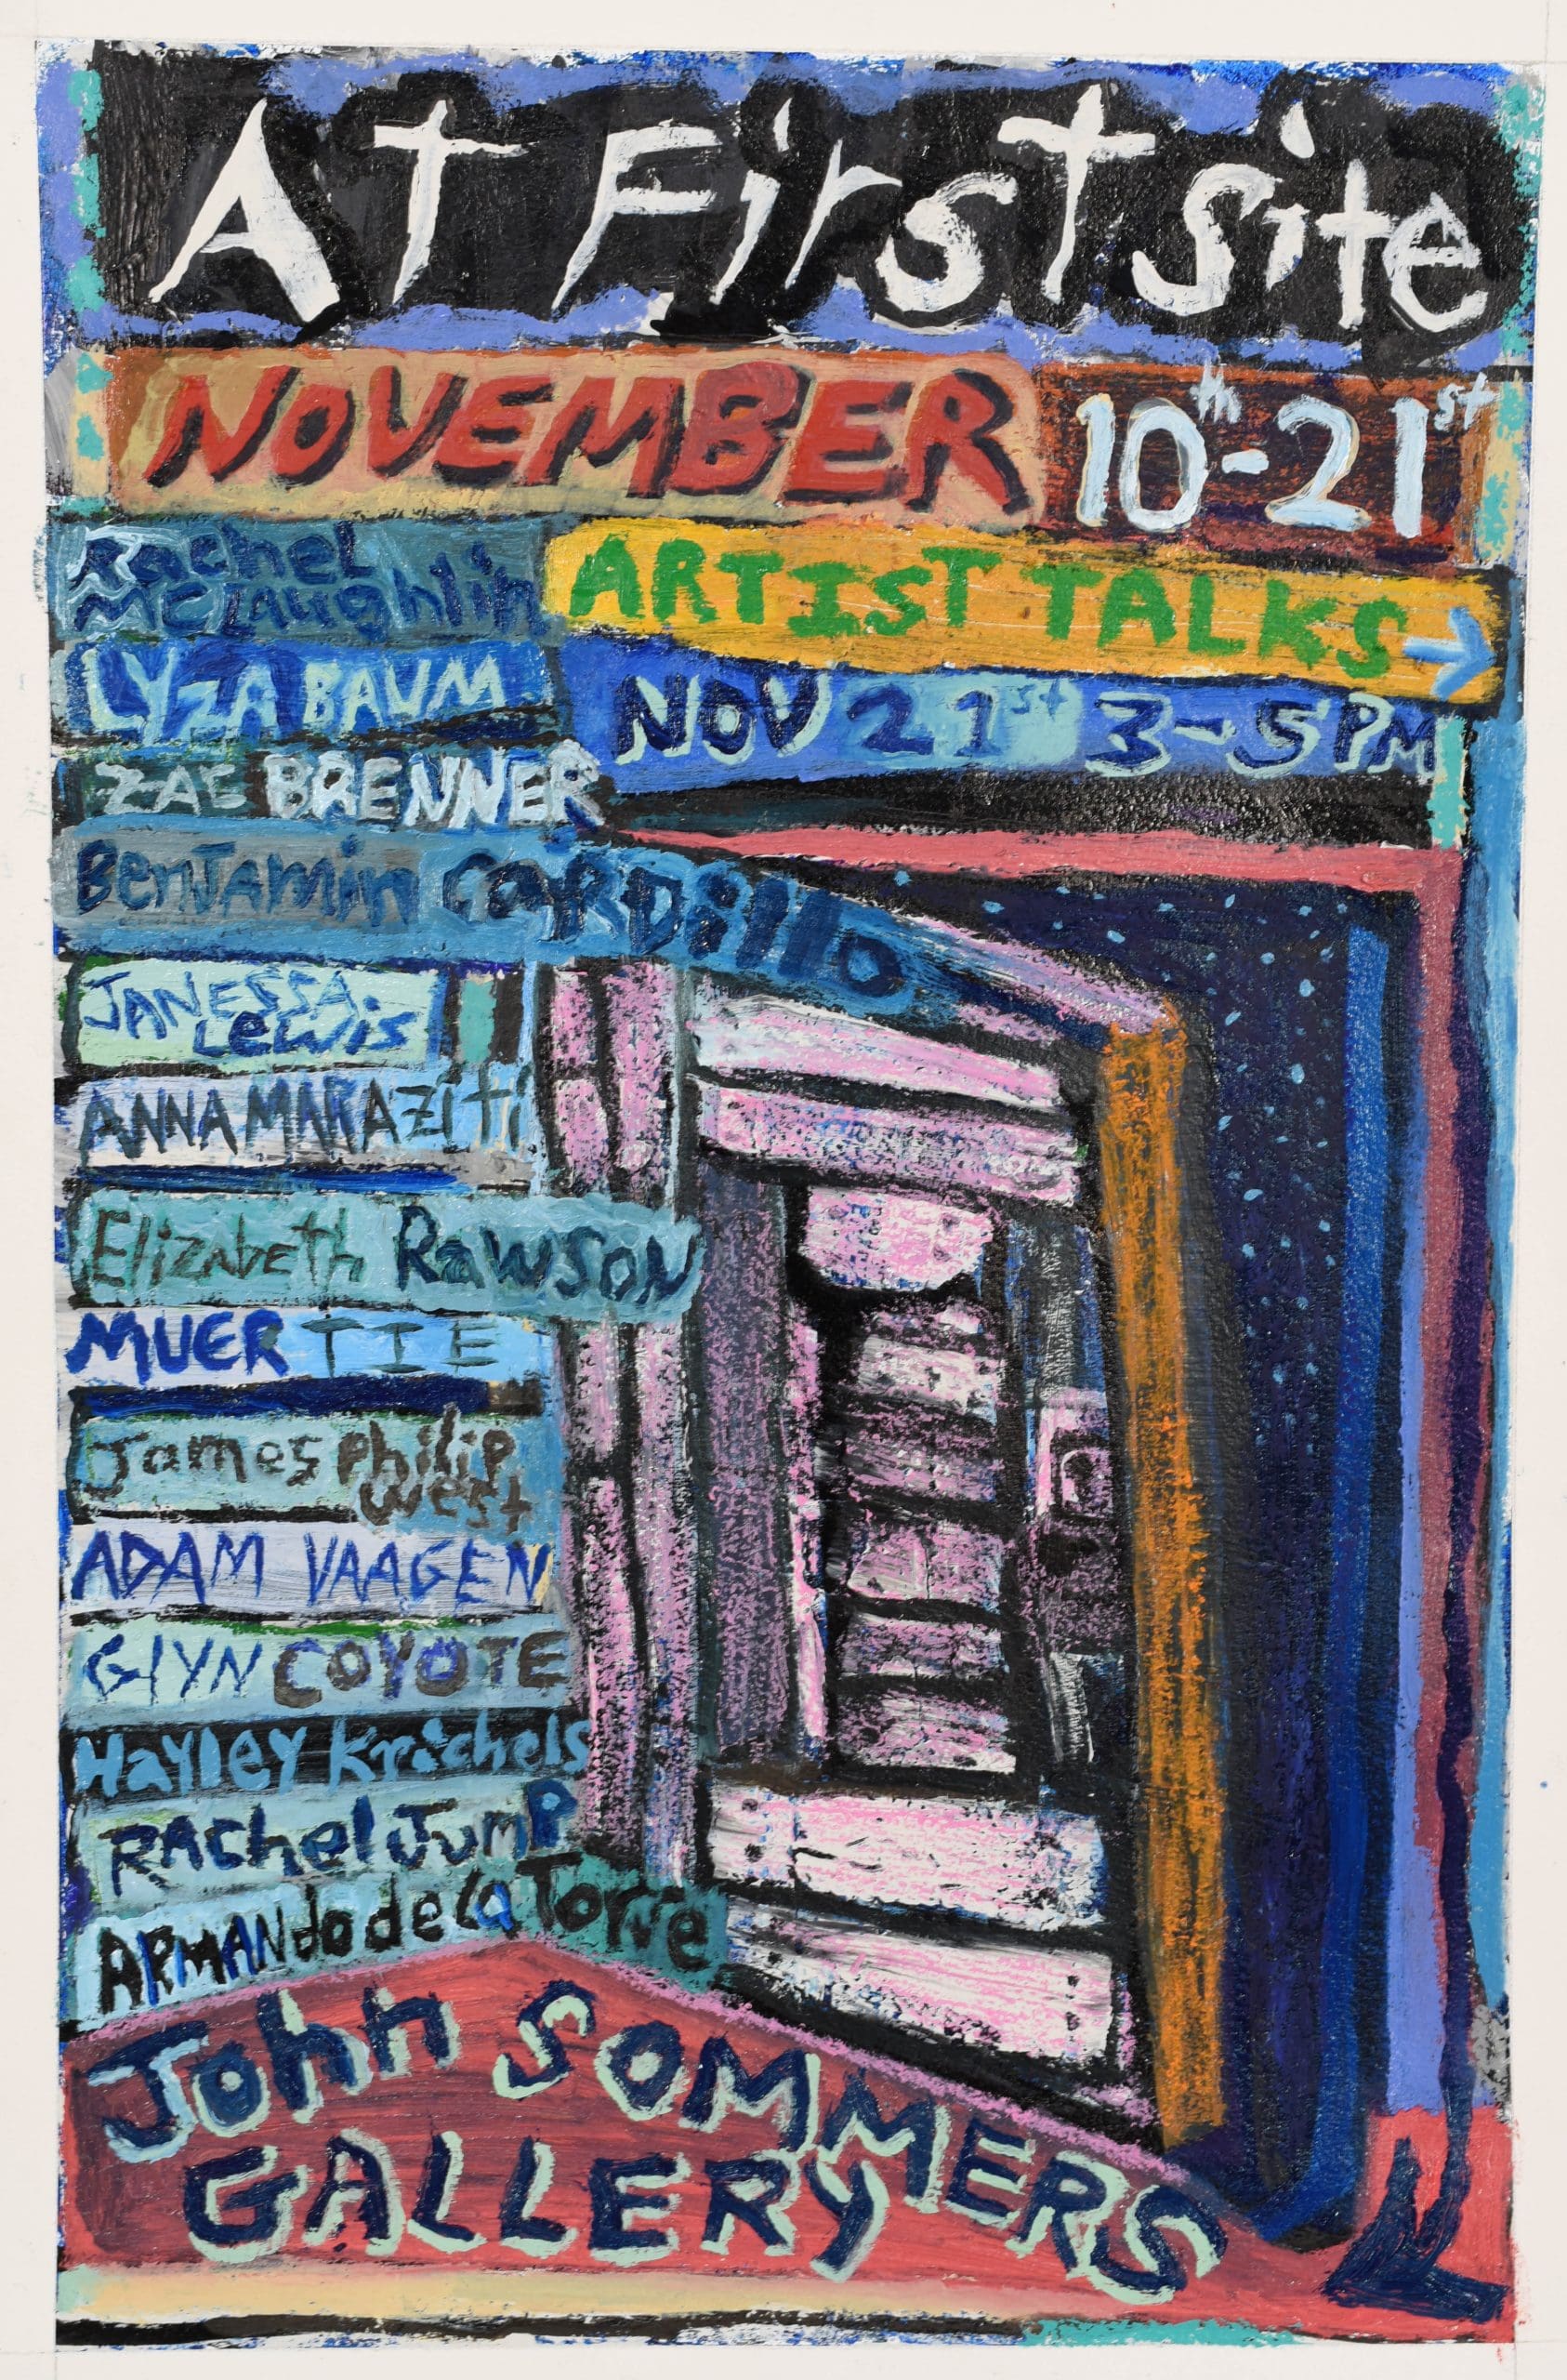 AT First site
NOVEMBER 10th-21st
Rachel
McLaughlin
ARTIST TALKS →
NOV 21st 3-5PM
LYZA BAUM
ZAC BRENNER
BenJamin CARDillo
JANESSA
Lewis
ANNA MARAZiti
ElizAbeTh RawsoN
MUERTIE
James Philip
West
ADAM VAAGEN
GLYN COYOTE
Hayley Krichels
RAchel JumP
ARMANdo de la Torre
John SOMMERS
GALLERY